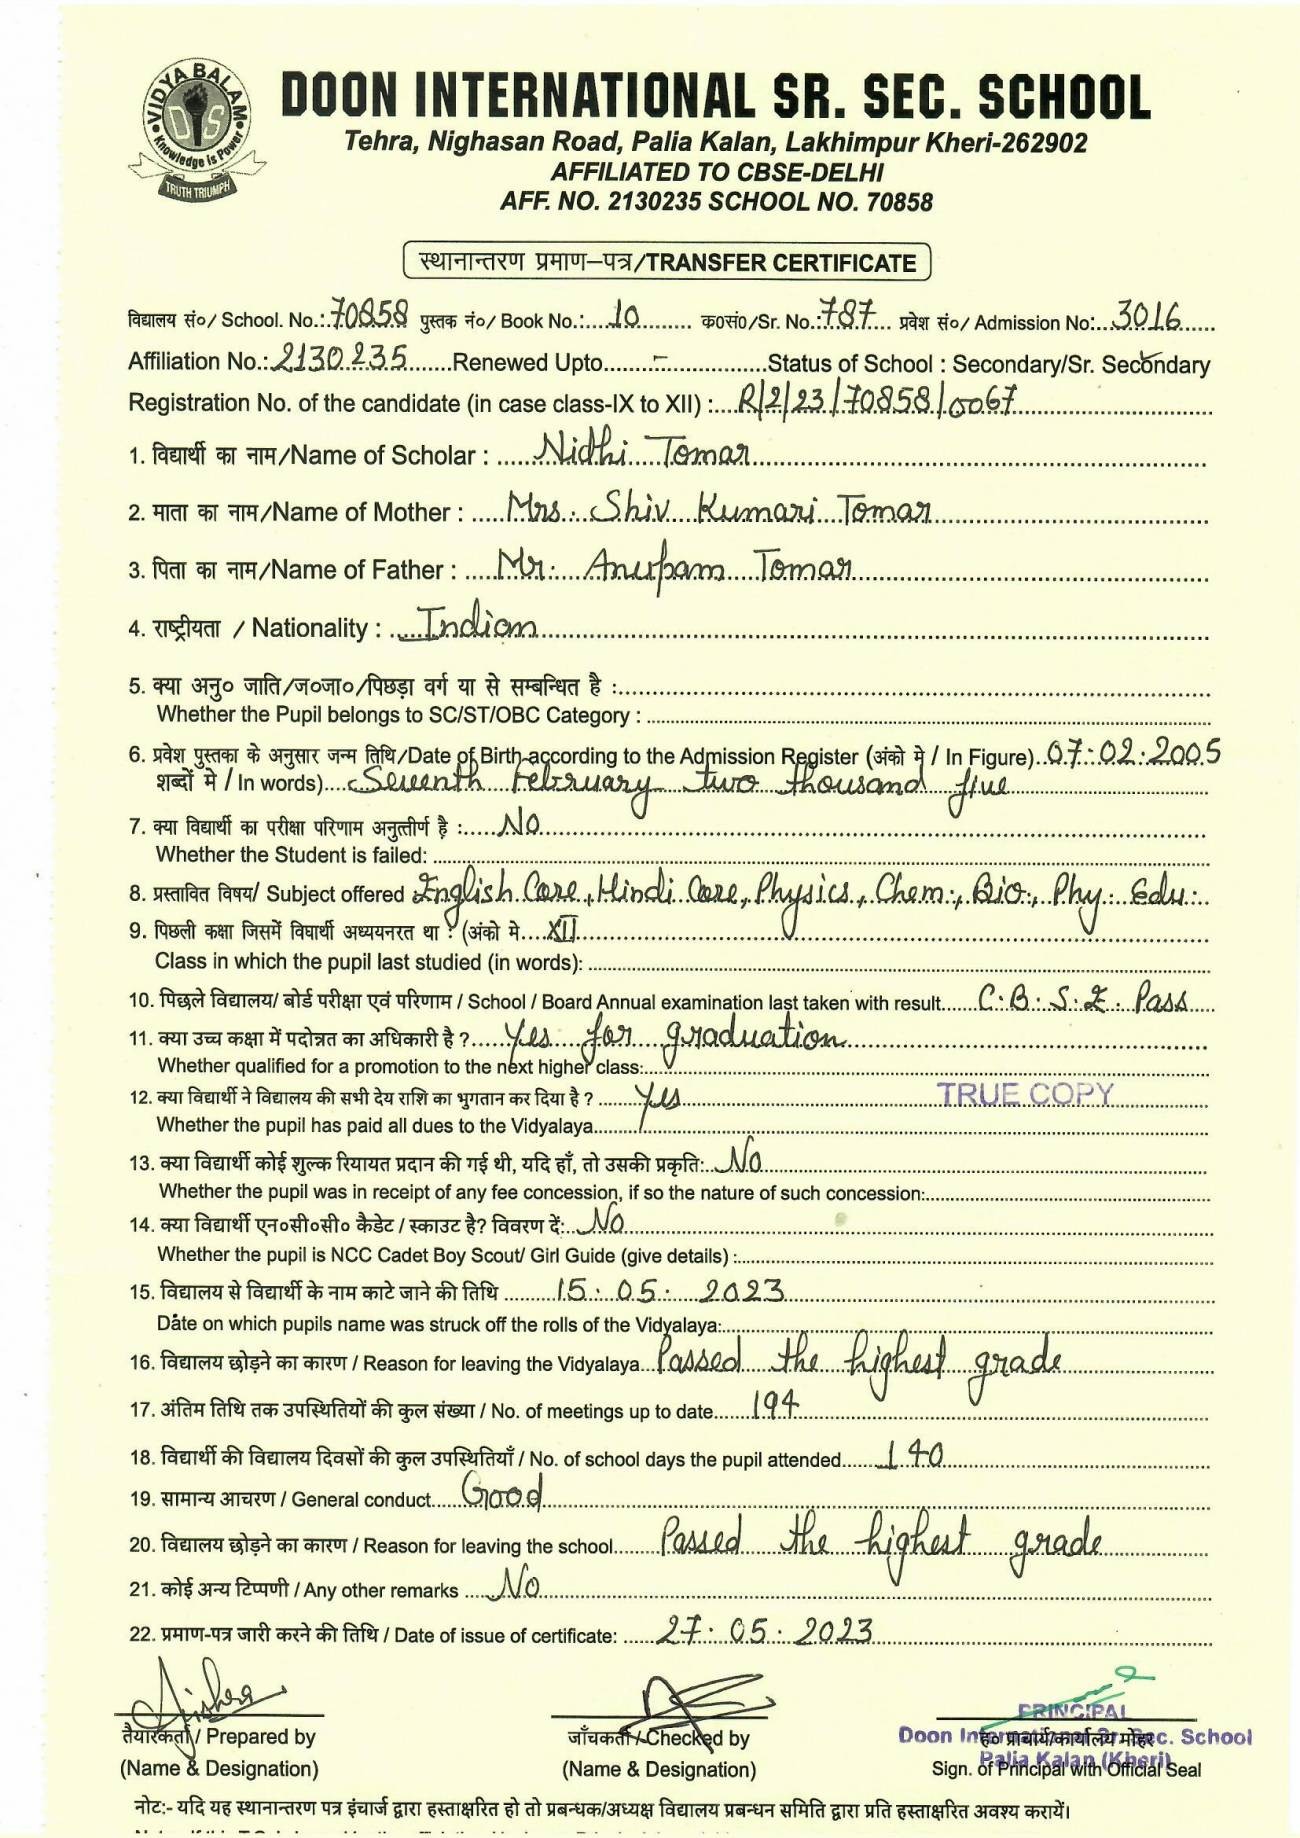 VIDYA BALAM
DIS
Knowledge is Power
TRUTH TRIUMPH
DOON INTERNATIONAL SR. SEC. SCHOOL
Tehra, Nighasan Road, Palia Kalan, Lakhimpur Kheri-262902
AFFILIATED TO CBSE-DELHI
AFF. NO. 2130235 SCHOOL NO. 70858
स्थानान्तरण प्रमाण–पत्र/TRANSFER CERTIFICATE
विद्यालय सं०/ School. No.:.70858 पुस्तक नं०/ Book No.:....10......... क०सं०/Sr. No.:787... प्रवेश सं०/ Admission No:..3016......
Affiliation No.:.2130235.......Renewed Upto.......-...............Status of School : Secondary/Sr. Secondary
Registration No. of the candidate (in case class-IX to XII) :...R/2/23/70858/0067
1. विद्यार्थी का नाम/Name of Scholar : .....Nidhi Tomar
2. माता का नाम/Name of Mother : .....Mrs. Shiv Kumari Tomar
3. पिता का नाम/Name of Father : .....Mr. Anupam Tomar
4. राष्ट्रीयता / Nationality : ....Indian
5. क्या अनु० जाति/ज०जा०/पिछड़ा वर्ग या से सम्बन्धित है :
Whether the Pupil belongs to SC/ST/OBC Category :
6. प्रवेश पुस्तका के अनुसार जन्म तिथि/Date of Birth according to the Admission Register (अंको मे / In Figure)..07.02.2005
शब्दों मे / In words)....Seventh February two thousand five
7. क्या विद्यार्थी का परीक्षा परिणाम अनुत्तीर्ण है :.....No
Whether the Student is failed:
8. प्रस्तावित विषय/ Subject offered English Core, Hindi Core, Physics, Chem., Bio., Phy. Edu.
9. पिछली कक्षा जिसमें विघार्थी अध्ययनरत था : (अंको मे....XII
Class in which the pupil last studied (in words):
10. पिछले विद्यालय/ बोर्ड परीक्षा एवं परिणाम / School / Board Annual examination last taken with result.....C.B.S.E. Pass
11. क्या उच्च कक्षा में पदोन्नत का अधिकारी है ?.....Yes for graduation
Whether qualified for a promotion to the next higher class:
12. क्या विद्यार्थी ने विद्यालय की सभी देय राशि का भुगतान कर दिया है ? ......Yes
TRUE COPY
Whether the pupil has paid all dues to the Vidyalaya
13. क्या विद्यार्थी कोई शुल्क रियायत प्रदान की गई थी, यदि हाँ, तो उसकी प्रकृति:..No
Whether the pupil was in receipt of any fee concession, if so the nature of such concession:
14. क्या विद्यार्थी एन०सी०सी० कैडेट / स्काउट है? विवरण दें:..No
Whether the pupil is NCC Cadet Boy Scout/ Girl Guide (give details) :
15. विद्यालय से विद्यार्थी के नाम काटे जाने की तिथि ........15.05.2023
Date on which pupils name was struck off the rolls of the Vidyalaya:
16. विद्यालय छोड़ने का कारण / Reason for leaving the Vidyalaya..Passed the highest grade
17. अंतिम तिथि तक उपस्थितियों की कुल संख्या / No. of meetings up to date......194
18. विद्यार्थी की विद्यालय दिवसों की कुल उपस्थितियाँ / No. of school days the pupil attended......140
19. सामान्य आचरण / General conduct.....Good
20. विद्यालय छोड़ने का कारण / Reason for leaving the school.......Passed the highest grade
21. कोई अन्य टिप्पणी / Any other remarks .....No
22. प्रमाण-पत्र जारी करने की तिथि / Date of issue of certificate: ......27.05.2023
तैयारकर्ता / Prepared by
(Name & Designation)
जाँचकर्ता / Checked by
(Name & Designation)
PRINCIPAL
Doon International Sr. Sec. School
Palia Kalan (Kheri)
ह० प्राचार्य/कार्यालय मोहर
Sign. of Principal with Official Seal
नोटः- यदि यह स्थानान्तरण पत्र इंचार्ज द्वारा हस्ताक्षरित हो तो प्रबन्धक/अध्यक्ष विद्यालय प्रबन्धन समिति द्वारा प्रति हस्ताक्षरित अवश्य करायें।